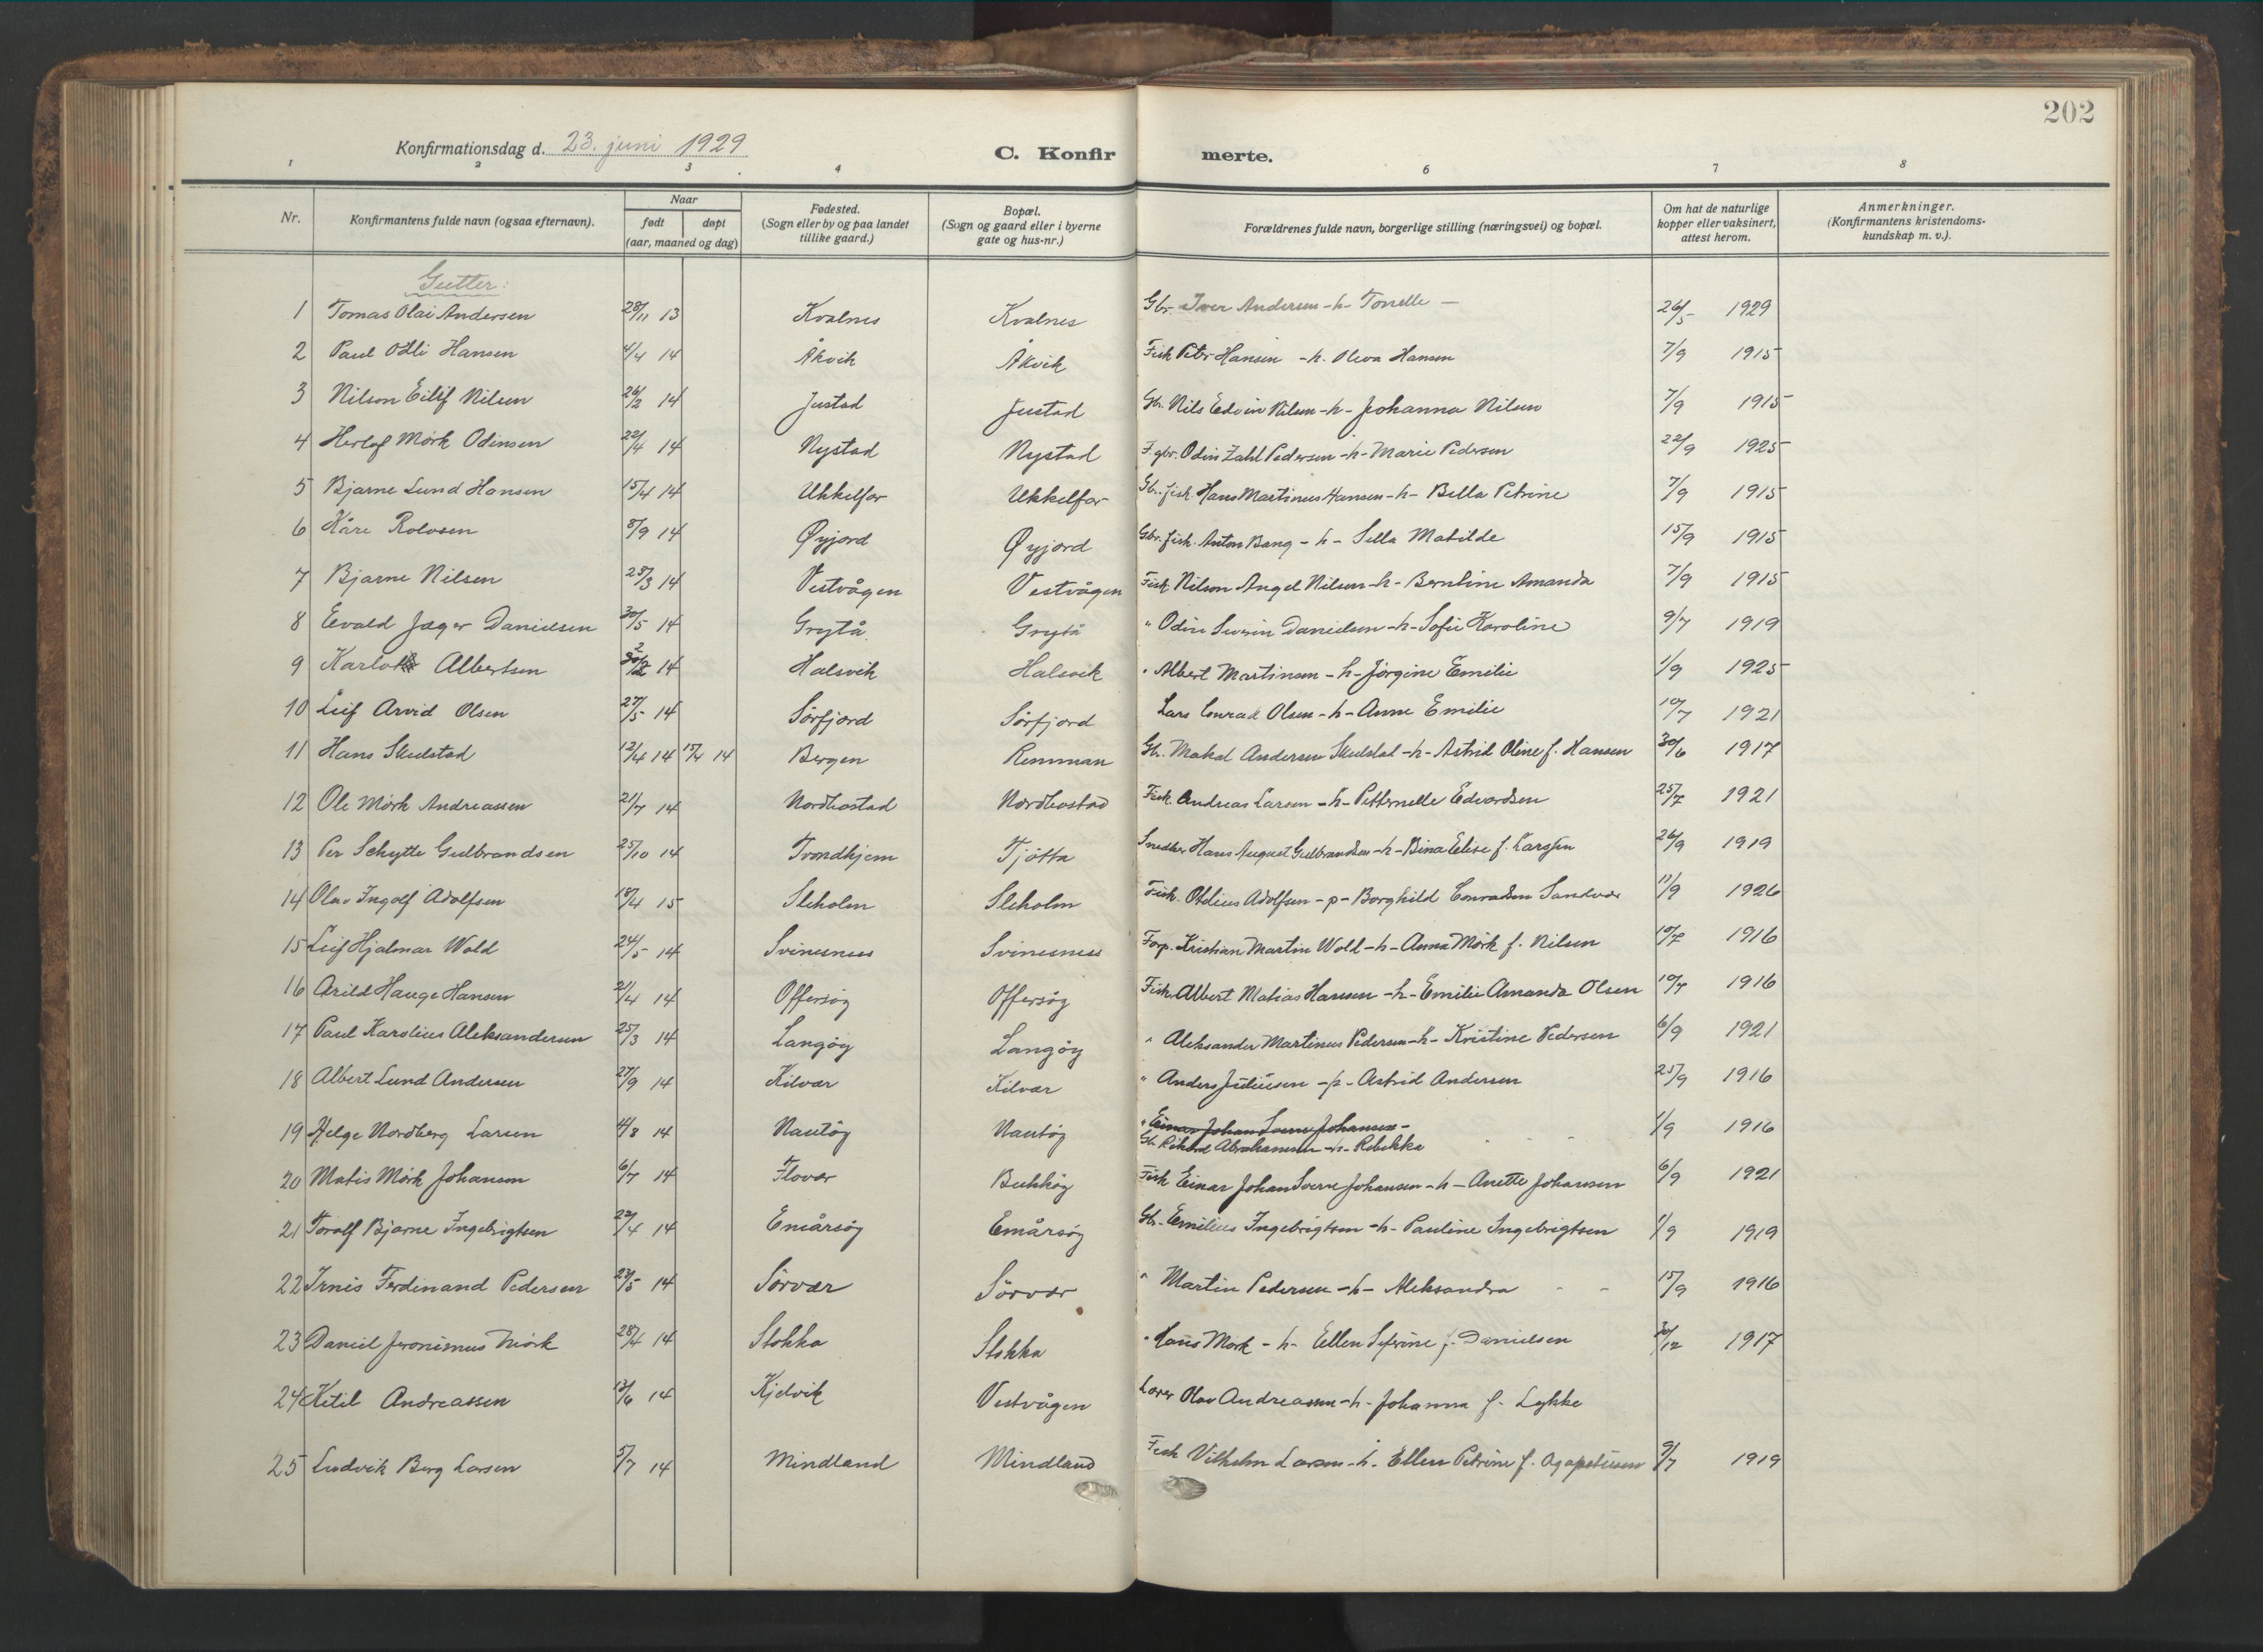 202
Konfirmationsdag d. 23. juni 1929
C. Konfir merte.
1 2 3 4 6 7 8
Nr. Konfirmantens fulde navn (ogsaa efternavn). Naar født døpt (aar, maaned og dag) Fødested. (Sogn eller by og paa landet tillike gaard.) Bopæl. (Sogn og gaard eller i byerne gate og hus-nr.) Forældrenes fulde navn, borgerlige stilling (næringsvei) og bopæl. Om hat de naturlige kopper eller vaksinert, attest herom. Anmerkninger. (Konfirmantens kristendoms-kundskap m. v.).
Gutter:
1 Tomas Olai Andersen 28/11 13 Kvalnes Kvalnes Gbr. Iver Andersen -h- Tonelle — 26/5 1929
2 Paul Odli Hansen 4/4 14 Åkvik Åkvik Fisk Peter Hansen -h. Oleva Hansen 7/9 1915
3 Nilson Eilif Nilsen 26/2 14 Justad Justad Gbr. Nils Edvin Nilsen -h- Johanna Nilsen 7/9 1915
4 Herlof Mörk Odinsen 22/4 14 Nystad Nystad F. gbr. Odin Zahl Pedersen -h- Marie Pedersen 22/9 1925
5 Bjarne Lund Hansen 15/4 14 Ukkelfar Ukkelfar Gbr. fisk. Hans Martinus Hansen -h- Bella Petrine 7/9 1915
6 Kåre Rolvsen 8/9 14 Øyjord Øyjord Gbr. fisk. Anton Bang -h- Sella Matilde 15/9 1915
7 Bjarne Nilsen 25/3 14 Vestvågen Vestvågen Fisk. Nilson Angel Nilsen -h- Berntine Amanda 7/9 1915
8 Evald Jæger Danielsen 30/5 14 Grytå Grytå " Odin Severin Danielsen -h- Sofie Karoline 9/7 1919
9 Karlot Albertsen 14 Halsvik Halsvik " Albert Martinsen -h- Jörgine Emilie 1/9 1925
10 Leif Arvid Olsen 27/5 14 Sörfjord Sörfjord Lars Conrad Olsen -h- Anne Emilie 10/7 1921
11 Hans Skulstad 12/4 14 15/4 14 Bergen Remman Gbr. Andersen Skulstad -h- Astrid Oline f. Hansen 30/6 1917
12 Ole Mörk Andreassen 21/7 14 Nordbostad Nordbostad Fisk. Andreas Larsen -h- Petternelle Edvardsen 25/7 1921
13 Per Schytte Gulbrandsen 25/10 14 Trondhjem Tjötta Snedker Hans August Gulbrandsen -h- Bina Elise f. Larssen 26/9 1919
14 Olav Ingolf Adolfsen 18/4 15 Sleholm Sleholm Fisk. Otelius Adolfsen -p- Borghild Conradsen Sandvær 11/9 1926
15 Leif Hjalmar Wold 24/5 14 Svinesness Svinesness Forp. Kristian Martin Wold -h- Anna Mörk f. Nilsen 10/7 1916
16 Arild Hauge Hansen 2/4 14 Offersöy Offersöy Fisk. Albert Matias Hansen -h- Emilie Amanda Olsen 10/7 1916
17 Paul Karolius Aleksandersen 25/3 14 Langöy Langöy " Aleksander Martinus Pedersen -h- Kristine Pedersen 6/9 1921
18 Albert Lund Andersen 27/9 14 Kilvær Kilvær " Anders Juliussen -p- Astrid Andersen 25/9 1916
19 Helge Nordberg Larsen 4/8 14 Nautöy Nautöy " Einar Johan Sverre Johansen -
Gbr. Rikard Abrahamsen -h- Rebekka - - - 1/9 1916
20 Matis Mörk Johansen 6/7 14 Flovær Bukköy Fisk Einar Johan Sverre Johansen -h- Anette Johansen 6/9 1921
21 Toralf Bjarne Ingebrigtsen 22/4 14 Emårsöy Emårsöy Gbr. Emilius Ingebrigtsen -h- Pauline Ingebrigtsen 1/9 1919
22 Irnis Ferdinand Pedersen 23/5 14 Sörvær Sörvær " Martin Pedersen -h- Aleksandra - - 15/9 1916
23 Daniel Jeronimus Mörk 28/4 14 Stokka Stokka " Hans Mork -h- Ellen Seferine f. Danielsen 30/12 1917
24 Ketil Andreassen 13/6 14 Kjelvik Vestvågen Lærer Olav Andreassen -h- Johanna f. Lykke
25 Ludvik Berg Larsen 5/7 14 Mindland Mindland Fisk Vilhelm Larsen -h. Ellen Petrine f. Agapetusen 9/7 1919